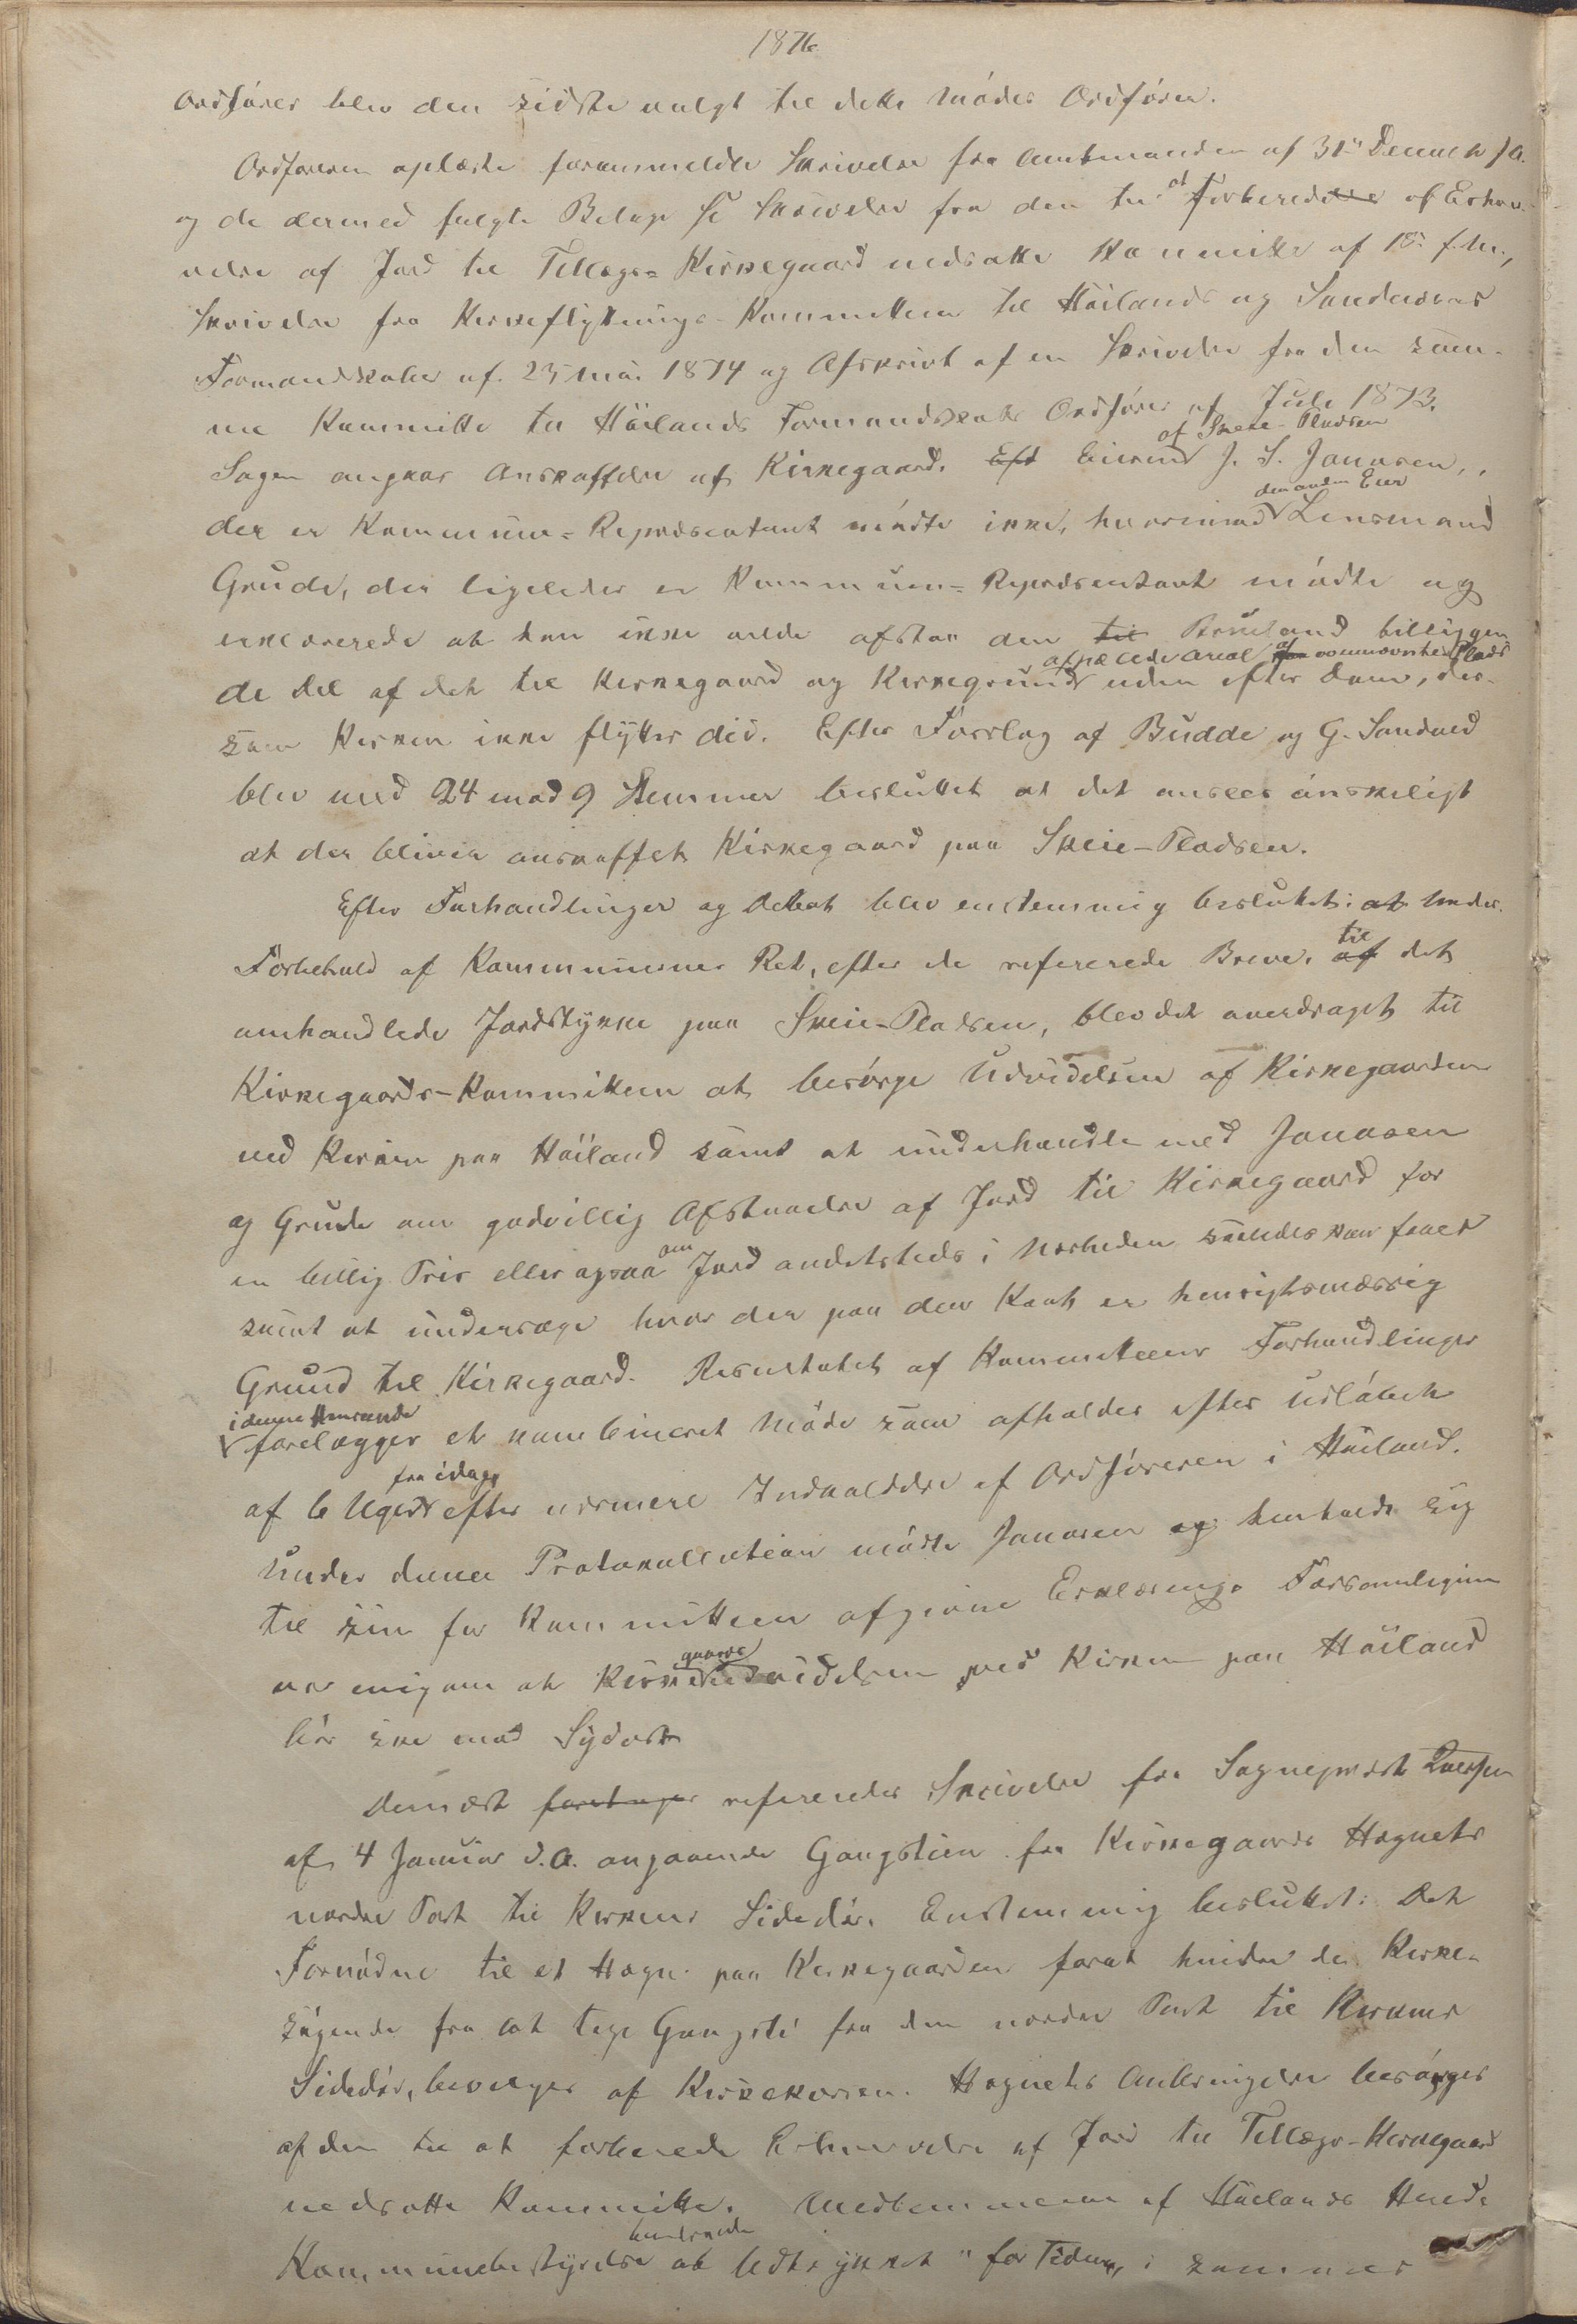 1876
Ordfører blev den sidste valgt til dette Mødes Ordfører.
Ordføreren oplæste forommeldte Skrivelse fra Amtmanden af 31te Decemb f A.
og de dermed fulgte Bilage Skrivelse fra den til at forberede Erhver-
velse af Jord til Tillægs-Kirkegaard nedsatte Kommitte af 10 f. M.,
Skrivelse fra Kirkeflytnings-Kommitteen til Høilands og Sandnæs
Formandskaber af 25 Mai 1874 og Afskrivt af en Skrivelse fra den sam-
me Kommitte til Høilands Formandskabs Ordfører af Juli 1873.
Sagen angaar Anskaffelse af Kirkegaard. Eieren af Skeie-Pladsen J. S. Jonasen,
der er Kommune-Repræsentant mødte ikke, hvorimod den anden Eier Lensmand
Grude, der ligeledes er Kommune-Repræsentant mødte og
erklærerede at han ikke vilde afstaa den til Brueland billiggen
de Del af det til Kirkegaard og Kirkegrund afpælede Areal af ovennævnte Plads uden efter Dom, der-
som Kirken ikke flyttes did. Efter Forslag af Budde og G. Sandved
blev med 24 mod 9 Stemmer besluttet at det ansees ønskeligt
at der bliver anskaffet Kirkegaard paa Skeie-Pladsen.
Efter Forhandlinger og Debat blev enstemmig besluttet: at Under
Forbehold af Kommunernes Ret, efter de refererede Breve, til det
omhandlede Jordstykke paa Skeie-Pladsen, blev det overdraget til
Kirkegaards-Kommitteen at besørge Udvidelsen af Kirkegaarden
ved Kirken paa Høiland samt at underhandle med Jonasen
og Grude om godvillig Afstaaelse af Jord til Kirkegaard for
en billig Pris eller ogsaa om Jord andetsteds i Nærheden saaledes kan faaes
samt at undersøge hvor der paa den Kant er hensigtsmæssig
Grund til Kirkegaard. Resultatet af Kommitteens Forhandlinger
i denne Henseende forelægges et kombineret Møde som afholdes efter Udløbet
af 6 Uger fra idag, efter nærmere Indkaldelse af Ordføreren i Høiland.
Under denne Protokollation mødte Jonasen og henholdt sig
til sin for Kommitteen afgivne Erklæring. Forsamlingen
var enig om at Kirkegaards Udvidelsen ved Kirken paa Høiland
bør ske mod Sydost
Dernæst foretages refereredes Skrivelse fra Sognepræst
af 4 Januar d. A. angaaende Gangstien fra Kirkegaards Hegnets
nordre Port til Kirkens Sidedør. Enstemmig besluttet: Det
Fornødne til et Hegn paa Kirkegaarden forat hindre de Kirke-
søgende fra at tage Gangsti fra den nordre Port til Kirkens
Sidedør, bevilges af Kirkekassen. Hegnets Anbringelse besørges
af den til at forberede Erhvervelse af Jord til Tillægs-Kirkegaard
nedsatte Kommitte. Medlemmerne af Høilands Herreds
Kommunebestyrelse at Udtrykket "for Tiden" i sammes